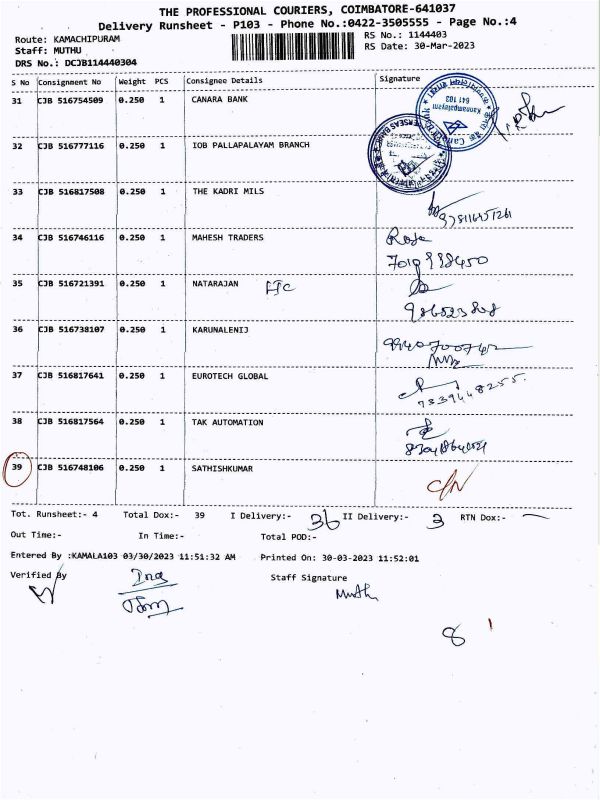 THE PROFESSIONAL COURIERS, COIMBATORE-641037
Delivery Runsheet - P103 - Phone No.:0422-3505555 - Page No.:4
Route: KAMACHIPURAM RS No.: 1144403
Staff: MUTHU RS Date: 30-Mar-2023
DRS No.: DCJB114440304
S No Consignment No Weight PCS Consignee Details Signature
31 CJB 516754509 0.250 1 CANARA BANK
Kannampalayam
641 103
32 CJB 516777116 0.250 1 IOB PALLAPALAYAM BRANCH
33 CJB 516817508 0.250 1 THE KADRI MILS
34 CJB 516746116 0.250 1 MAHESH TRADERS Roja
35 CJB 516721391 0.250 1 NATARAJAN
36 CJB 516738107 0.250 1 KARUNALENIJ
37 CJB 516817641 0.250 1 EUROTECH GLOBAL
7339448255.
38 CJB 516817564 0.250 1 TAK AUTOMATION
39 CJB 516748106 0.250 1 SATHISHKUMAR
C/N
Tot. Runsheet:- 4 Total Dox:- 39 I Delivery:- 36 II Delivery:- 3 RTN Dox:- —
Out Time:- In Time:- Total POD:-
Entered By :KAMALA103 03/30/2023 11:51:32 AM Printed On: 30-03-2023 11:52:01
Verified By Staff Signature
Muthu
8